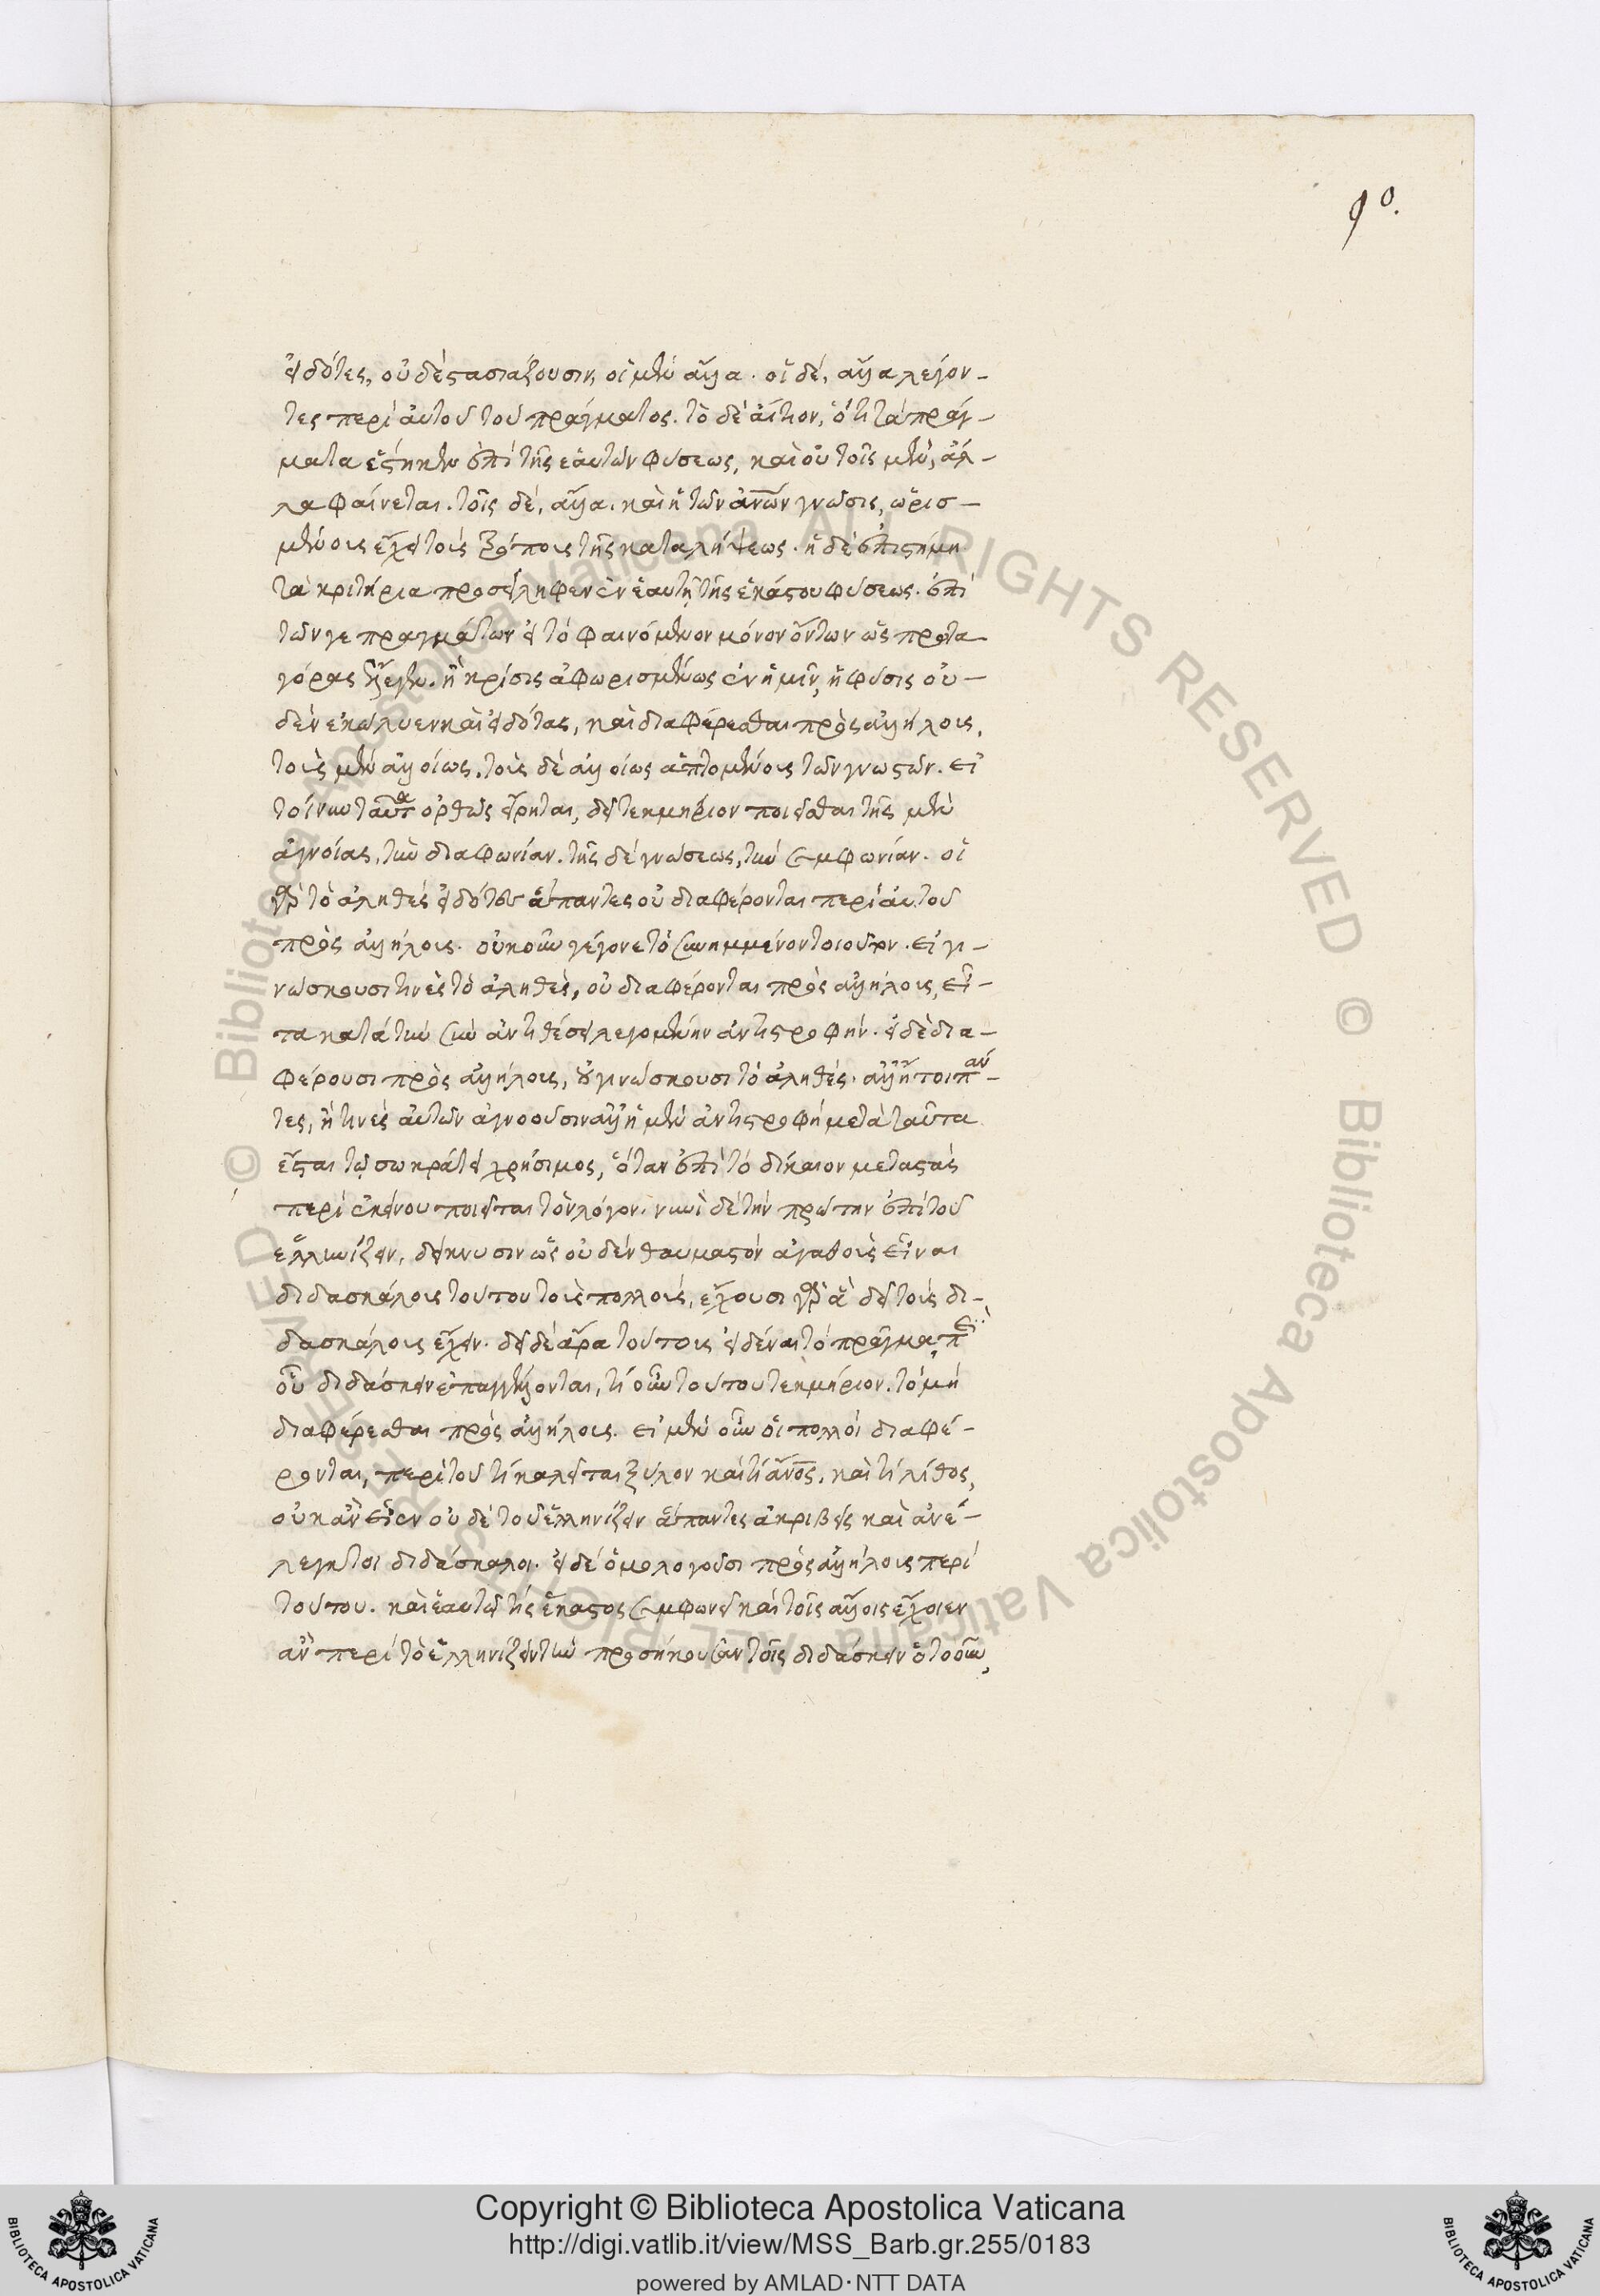 90.
εἰδότες, οὐδὲ στασιάζουσιν, οἱ μὲν ἄλλα. οἱ δέ, ἄλλα λέγον-
τες περὶ αὐτοῦ τοῦ πράγματος. τὸ δὲ αἴτιον, ὅτι τὰ πράγ-
ματα ἕστηκεν ἐπὶ τῆς ἑαυτῶν φύσεως, καὶ οὐ τοῖς μὲν, ἀλ-
λα φαίνεται. τοῖς δέ, ἄλλα. καὶ ἡ τῶν ἀνων γνῶσις, ὡρισ-
μένοις ἔχει τοῖς τρόποις τῆς καταλήψεως. ἡ δὲ ἐπιστήμη
τὰ κριτήρια προσείληφεν ἐν ἑαυτῇ τῆς ἑκάστου φύσεως. ἐπὶ
τῶν γε πραγμάτων εἰ τὸ φαινόμενον μόνον ὄντων ὡς πρωτα
γόρας ἔλεγεν. ἡ κρίσις ἀφωρισμένως ἐν ἡμῖν, ἡ φύσις οὐ-
δὲν ἐκώλυεν καὶ εἰδότας, καὶ διαφέρεσθαι πρὸς ἀλλήλους,
τοὺς μὲν ἀλλοίως, τοὺς δὲ ἀλλοίως ἁπτομένους τῶν γνωστῶν. εἰ
τοίνυν ταῦτα ὀρθῶς εἴρηται, δεῖ τεκμήριον ποιεῖσθαι τῆς μὲν
ἀγνοίας, τὴν διαφωνίαν. τῆς δὲ γνώσεως, τὴν συμφωνίαν. οἱ
γὰρ τὸ ἀληθὲς εἰδότες ἅπαντες οὐ διαφέρονται περὶ αὐτοῦ
πρὸς ἀλλήλους. οὐκοῦν γέγονε τὸ συνημμένον τοιοῦτον. εἰ γι-
νώσκουσι τινὲς τὸ ἀληθὲς, οὐ διαφέρονται πρὸς ἀλλήλους, εἶ-
τα κατὰ τὴν σὺν ἀντιθέσει λεγομένην ἀντιστροφήν. εἰ δὲ δια-
φέρουσι πρὸς ἀλλήλους, οὐ γινώσκουσι τὸ ἀληθές. ἀλλ' ἤτοι πάν-
τες, ἢ τινὲς αὐτῶν ἀγνοοῦσιν ἀλλ' ἡ μὲν ἀντιστροφὴ μετὰ ταῦτα
ἔσται τῷ σωκράτει χρήσιμος, ὅταν ἐπὶ τὸ δίκαιον μεταστὰς
περὶ ἐκείνου ποιεῖται τὸν λόγον. νυνὶ δὲ τὴν πρώτην ἐπὶ τοῦ
ἑλληνίζειν, δείκνυσιν ὡς οὐδὲν θαυμαστὸν ἀγαθοὺς εἶναι
διδασκάλους τούτου τοὺς πολλοὺς, ἔχουσι γὰρ ἃ δεῖ τοὺς δι-
δασκάλους ἔχειν. δεῖ δὲ ἄρα τούτους εἰδέναι τὸ πρᾶγμα, περὶ
οὗ διδάσκειν ἐπαγγέλλονται, τί οὖν τούτου τεκμήριον. τὸ μὴ
διαφέρεσθαι πρὸς ἀλλήλους. εἰ μὲν οὖν οἱ πολλοὶ διαφέ-
ρονται, περὶ τοῦ τί καλεῖται ξύλον καὶ τί ἄνος. καὶ τί λίθος,
οὐκ ἂν εἶεν οὐδὲ τοῦ ἑλληνίζειν ἅπαντες ἀκριβεῖς καὶ ἀνέ-
λεγκτοι διδάσκαλοι. εἰ δὲ ὁμολογοῦσι πρὸς ἀλλήλους περὶ
τούτου. καὶ ἑαυτῷ τίς ἕκαστος συμφωνεῖ καὶ τοῖς ἄλλοις ἔχοιεν
ἂν περὶ τὸ ἑλληνίζειν τὴν προσήκουσαν τοῖς διδάσκειν ὁτοοῦν,
Copyright © Biblioteca Apostolica Vaticana
http://digi.vatlib.it/view/MSS_Barb.gr.255/0183
powered by AMLAD·NTT DATA